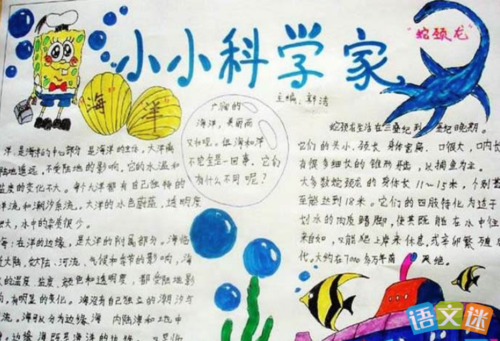 小小科学家
"蛇颈龙"
海洋
主编:郭洁
广阔的
海洋,美丽而
又和
海和洋
不完全是一回事,它们
有什么不同呢?
洋,是海洋的中心部分,是海洋的主体,大洋离
陆地遥远,不受陆地的影响,它的水温和
盐度的变化不大。每个大洋都有自己独特的
洋流和潮汐系统。大洋的水色蔚蓝,透明度
很大,水中的杂质很少。
海:在洋的边缘,是大洋的附属部分。海临
近大陆,受大陆、河流、气候和季节的影响,海
水的温度、盐度、颜色和透明度,都受陆地影
响,有明显的变化。海没有自己独立的潮汐与
海流。海可以分为边缘海、内陆海和地中
蛇颈龙生活在三叠纪到
纪晚期。
它们的头小,颈长,身体宽扁,口很大,口内长
有很多细长的锥形牙齿,以捕鱼为生。
大多数蛇颈龙的身体长11~15米,个别甚
至能达到18米。它们的四肢特化为适于
划水的肉质鳍脚,使其既能在水中往
来自如,又能爬上岸来休息,或产卵繁殖后
代。大约在7000多万年前灭绝。
语文迷